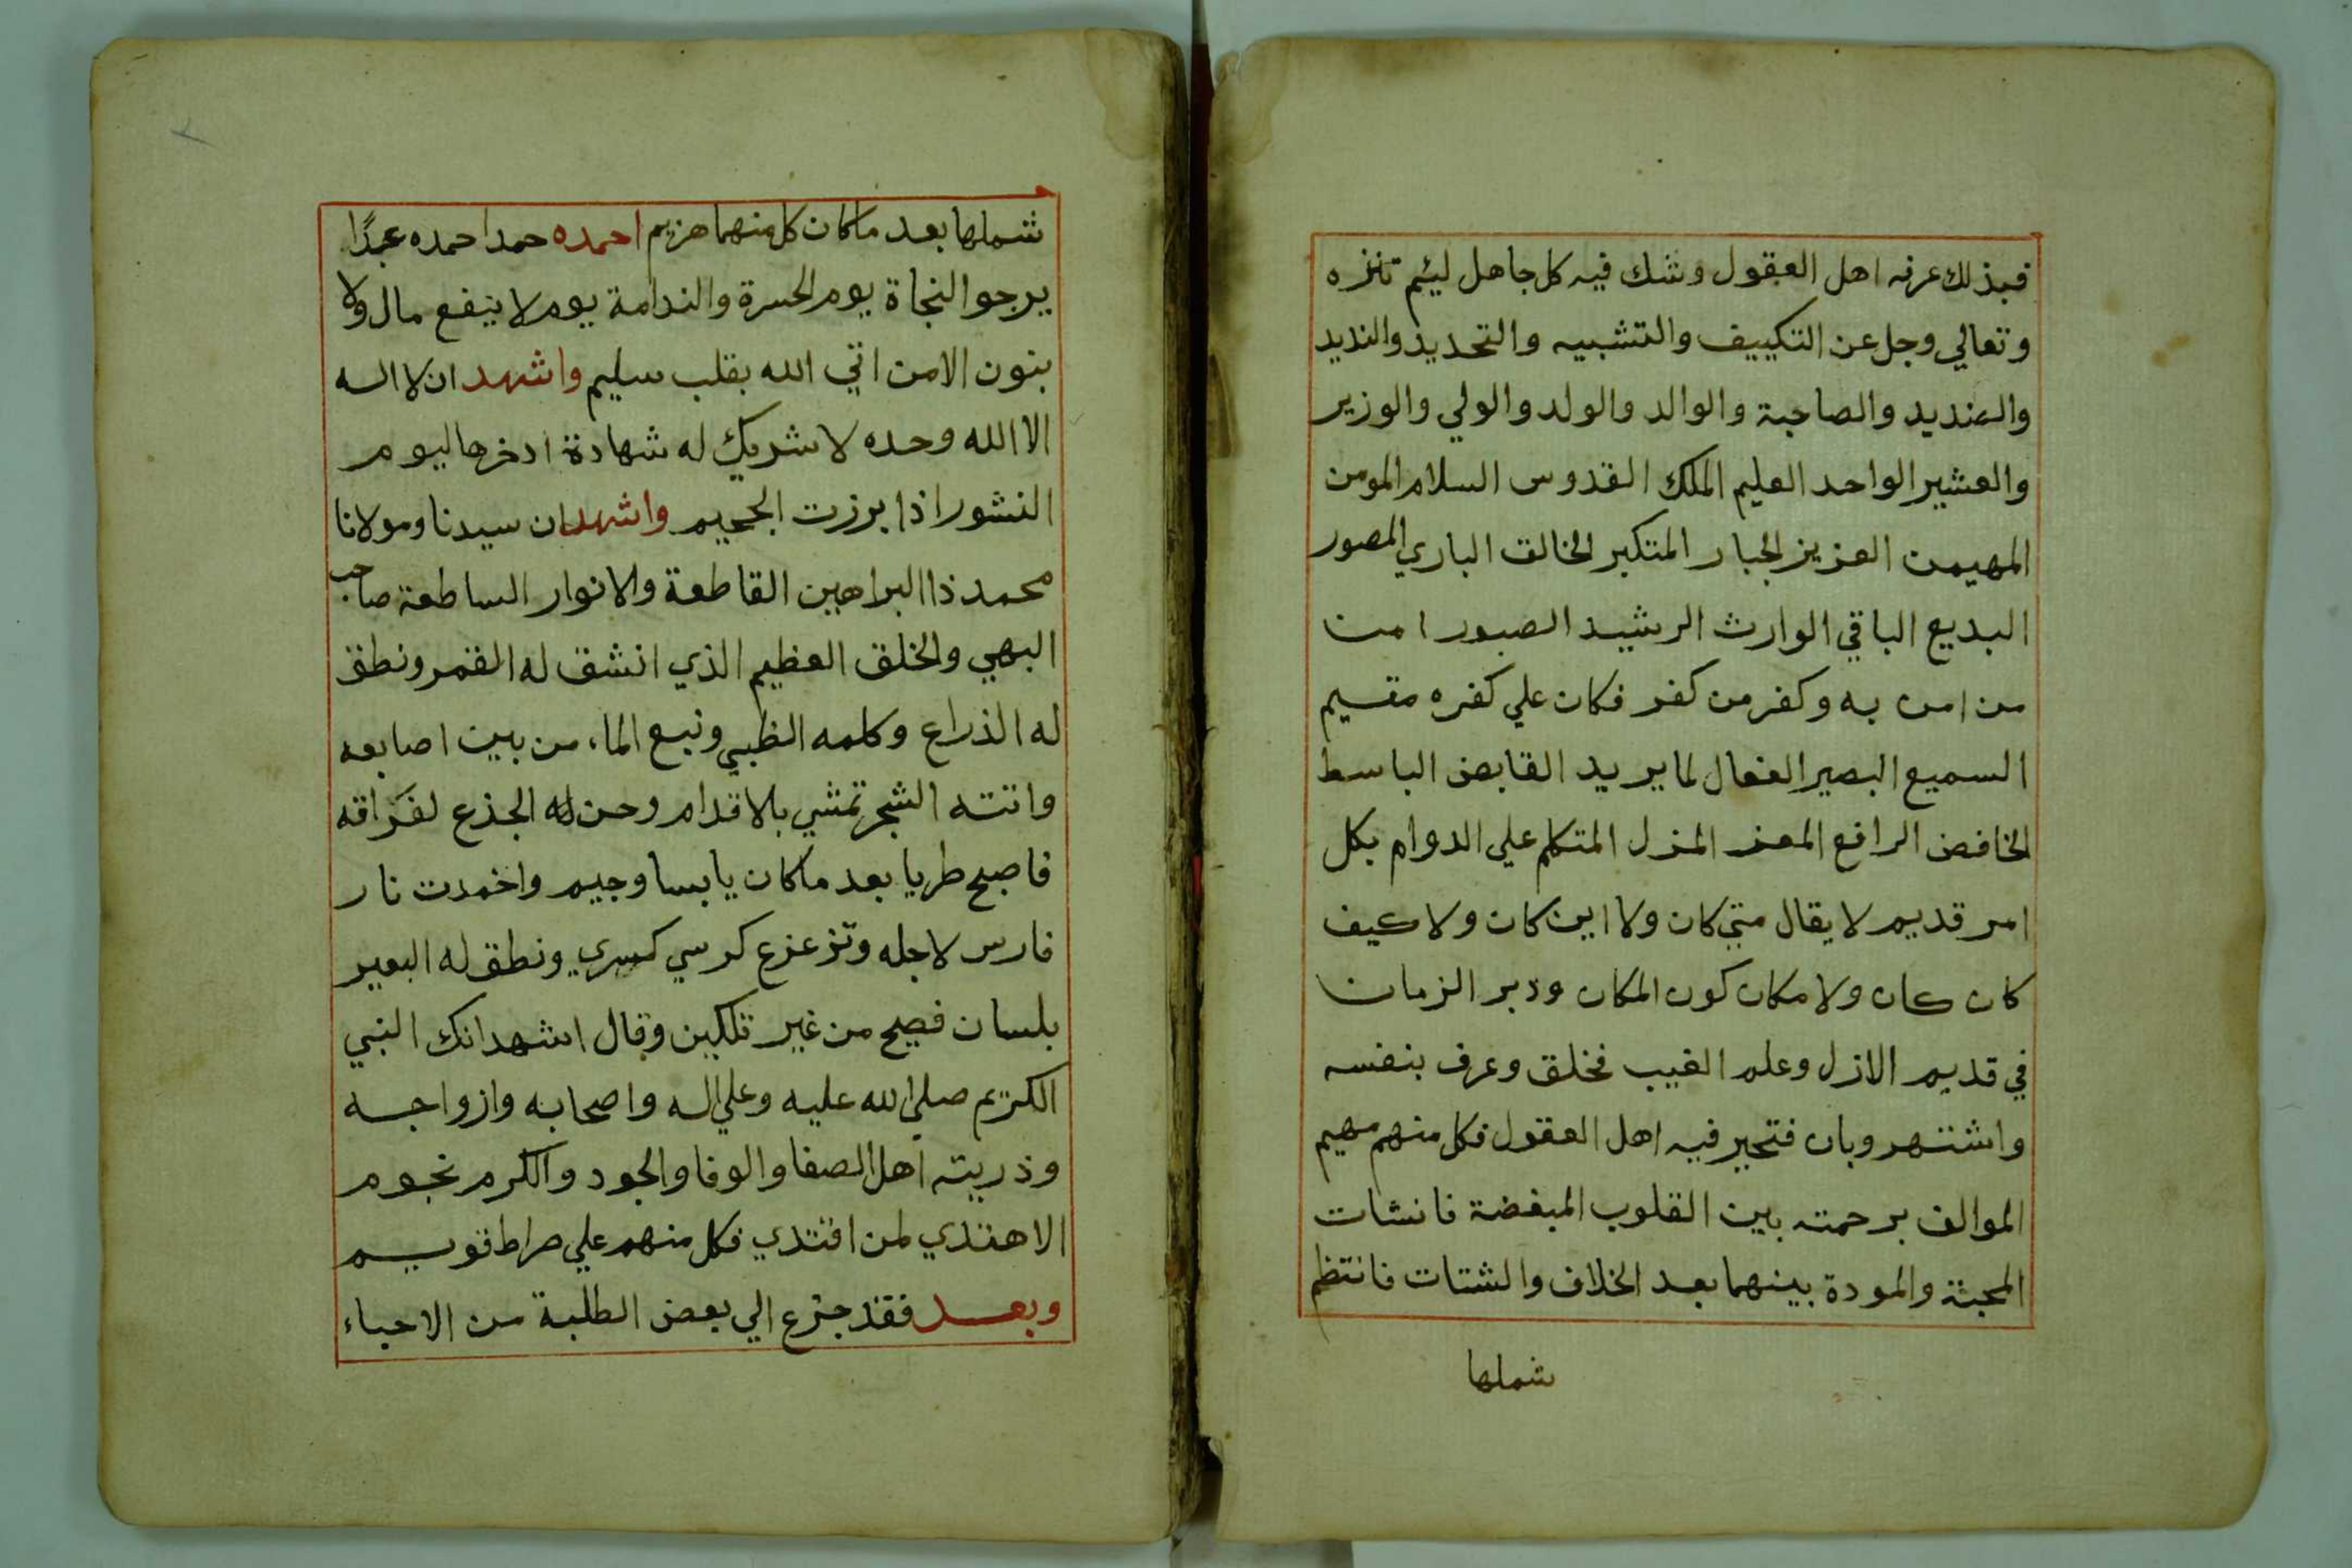 فبذلك عرفه اهل العقول وشك فيه كل جاهل ليئم تنزه
وتعالي وجل عن التكييف والتشبيه والتحديد والنديد
والضديد والصاحبة والوالد والولد والولي والوزير
والعشير الواحد العليم الملك القدوس السلام المومن
المهيمن العزيز الجبار المتكبر الخالق الباري المصور
البديع الباقي الوارث الرشيد الصبور امن
من امن به وكفر من كفر فكان علي كفره مقيم
السميع البصير الفعال لما يريد القابض الباسط
الخافض الرافع المعز المزل المتكلم علي الدوام بكل
امر قديم لا يقال متي كان ولا اين كان ولا كيف
كان كان ولا مكان كون المكان ودبر الزمان
في قديم الازل وعلم الغيب فخلق وعرف بنفسه
واشتهر وبان فتحير فيه اهل العقول فكل منهم مهيم
الموالف برحمته بين القلوب المبغضة فانشات
المحبة والمودة بينهما بعد الخلاف والشتات فانتظم
شملها
شملها بعد ما كان كل منهما هزيم احمده حمدا احمده عبدًا
يرجوا النجاة يوم الحسرة والندامة يوم لا ينفع مال ولا
بنون الا من اتي الله بقلب سليم واشهد ان لا اله
الا الله وحده لا شريك له شهادة ادخرها ليوم
النشور اذا برزت الجحيم واشهد ان سيدنا ومولانا
محمد ذا البراهين القاطعة والانوار الساطعة صاحب
البهي والخلق العظيم الذي انشق له القمر ونطق
له الذراع وكلمه الظبي ونبع الماء من بين اصابعه
واتته الشجر تمشي بالاقدام وحن له الجذع لفراقه
فاصبح طريا بعد ما كان يابسا وجيم واخمدت نار
فارس لاجله وتزعزع كرسي كسري ونطق له البعير
بلسان فصيح من غير تلكين وقال اشهد انك النبي
الكريم صلي الله عليه وعلي اله واصحابه وازواجه
وذريته اهل الصفا والوفا والجود والكرم نجوم
الاهتدي لمن اقتدي فكل منهم علي صراط قويم
وبعد فقد جنح الي بعض الطلبة من الاحباء